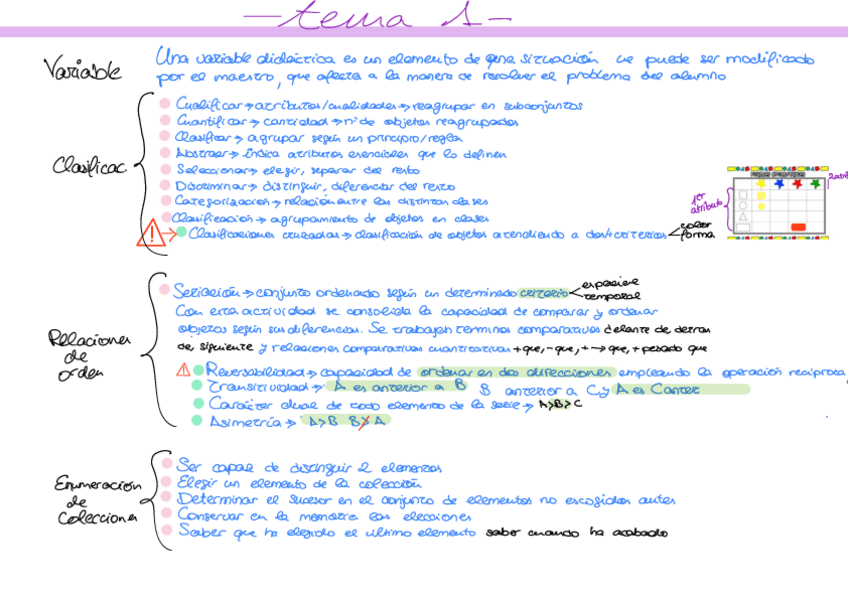 -tema 1-
Variable
Una variable didáctica es un elemento de una situación ue puede ser modificado
por el maestro, que afecta a la manera de resolver el problema del alumno
Clasificac
Cualificar → atributos/cualidades → reagrupar en subconjuntos
Cuantificar → cantidad → nº de objetos reagrupados
Clasificar → agrupar según un principio/regla
Abstraer → Indica atributos esenciales que lo definen
Seleccionar → elegir, separar del resto
Discriminar → distinguir, diferenciar del resto
Categorización → relación entre las distintas clases
Clasificación → agrupamiento de objetos en clases
Clasificaciones cruzadas → clasificación de objetos atendiendo a dos+criterios < color
forma
1er
atributo
Relaciones
de
orden
Seriación → conjunto ordenado según un determinado criterio < espacial
temporal
Con esta actividad se consolida la capacidad de comparar y ordenar
objetos según sus diferencias. Se trabajan terminos comparativos delante de detras
de, siguiente y relaciones comparativas cuantitativas + que, - que, + → que, + pesado que
Reversabilidad → capacidad de ordenar en dos direcciones empleando la operación recíproca
Transitividad → A es anterior a B B anterior a C y A es C antes
Carácter dual de todo elemento de la serie → A>B>C
Asimetría → A>B B≯A
Enumeración
de
colecciones
Ser capaz de distinguir 2 elementos
Elegir un elemento de la colección
Determinar el sucesor en el conjunto de elementos no escogidos antes
Conservar en la memoria las elecciones
Saber que ha elegido el ultimo elemento saber cuando ha acabado